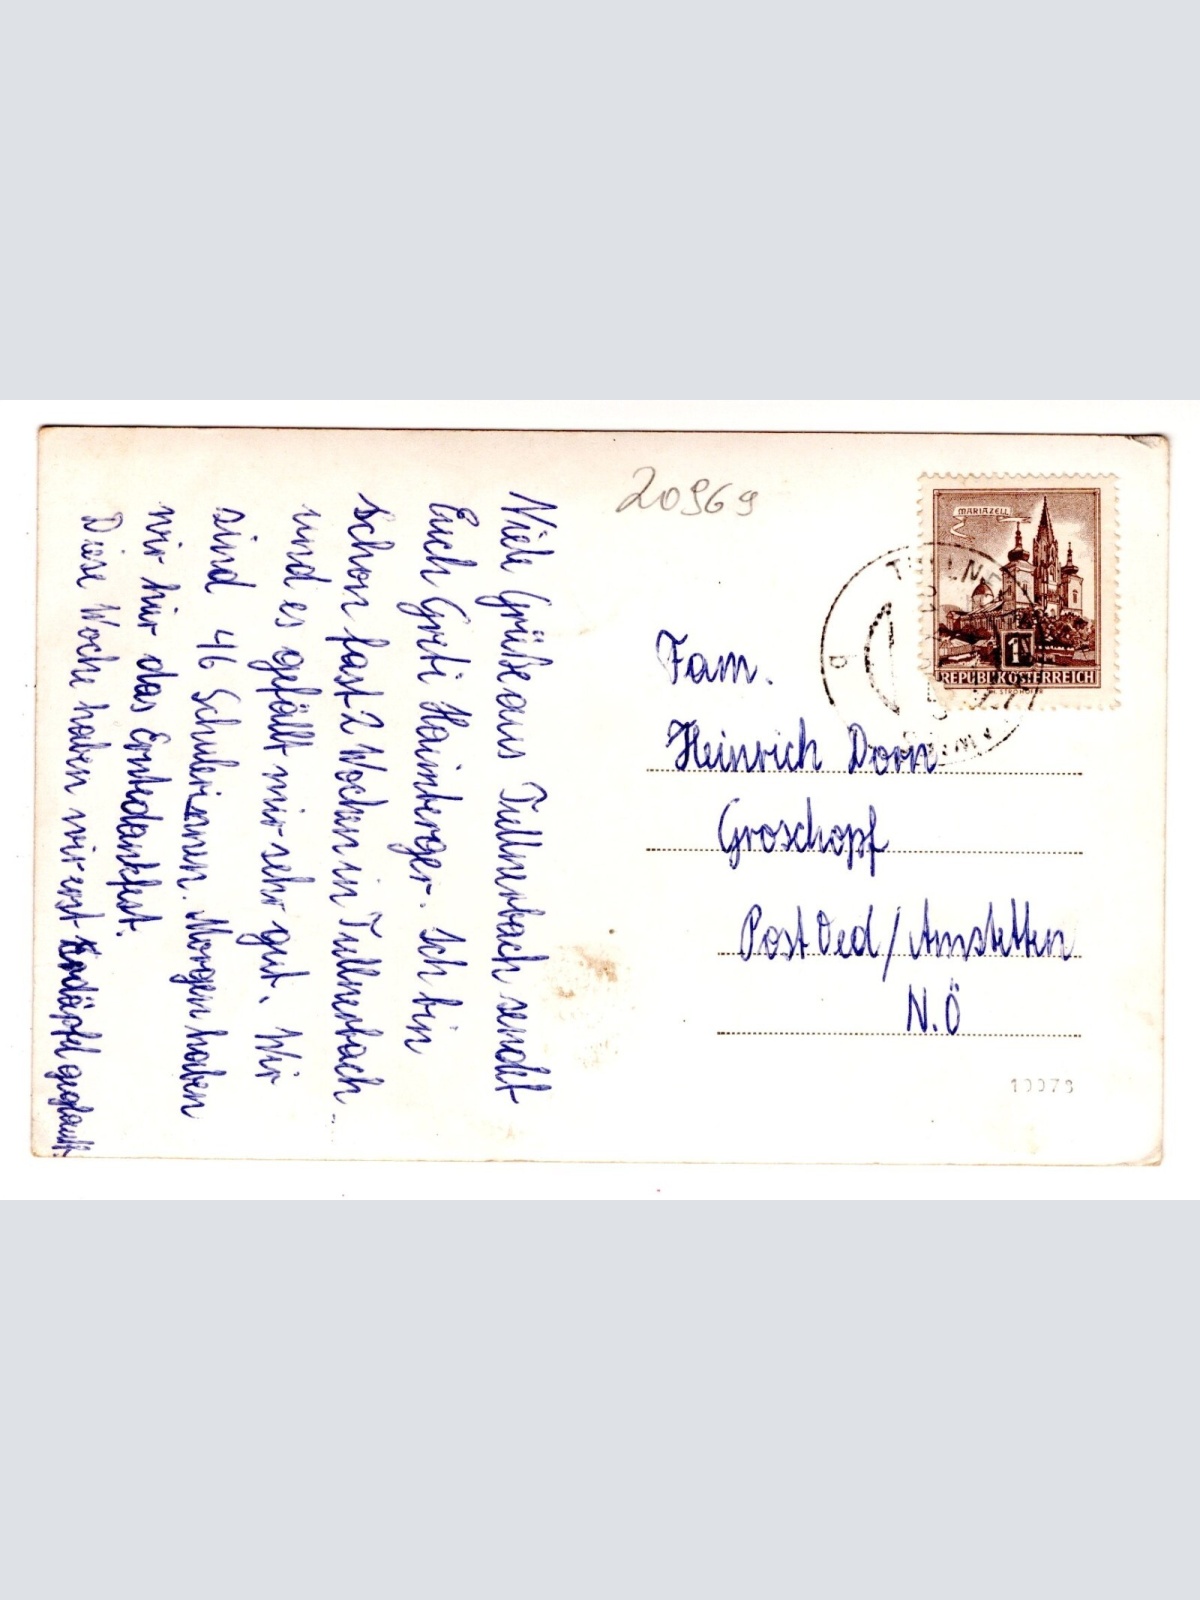 Viele Grüße aus Tullnerbach sendet
Euch Greti Haimberger. Ich bin
schon fast 2 Wochen in Tullnerbach
und es gefällt mir sehr gut. Wir
sind 46 Schülerinnen. Morgen haben
wir hier das Erntedankfest.
Diese Woche haben wir erst Erdäpfel geglaubt.
20969
MARIAZELL
1
REPUBLIK ÖSTERREICH
Fam.
Heinrich Dorn
Groschopf
Post Oed / Amstetten
N.Ö